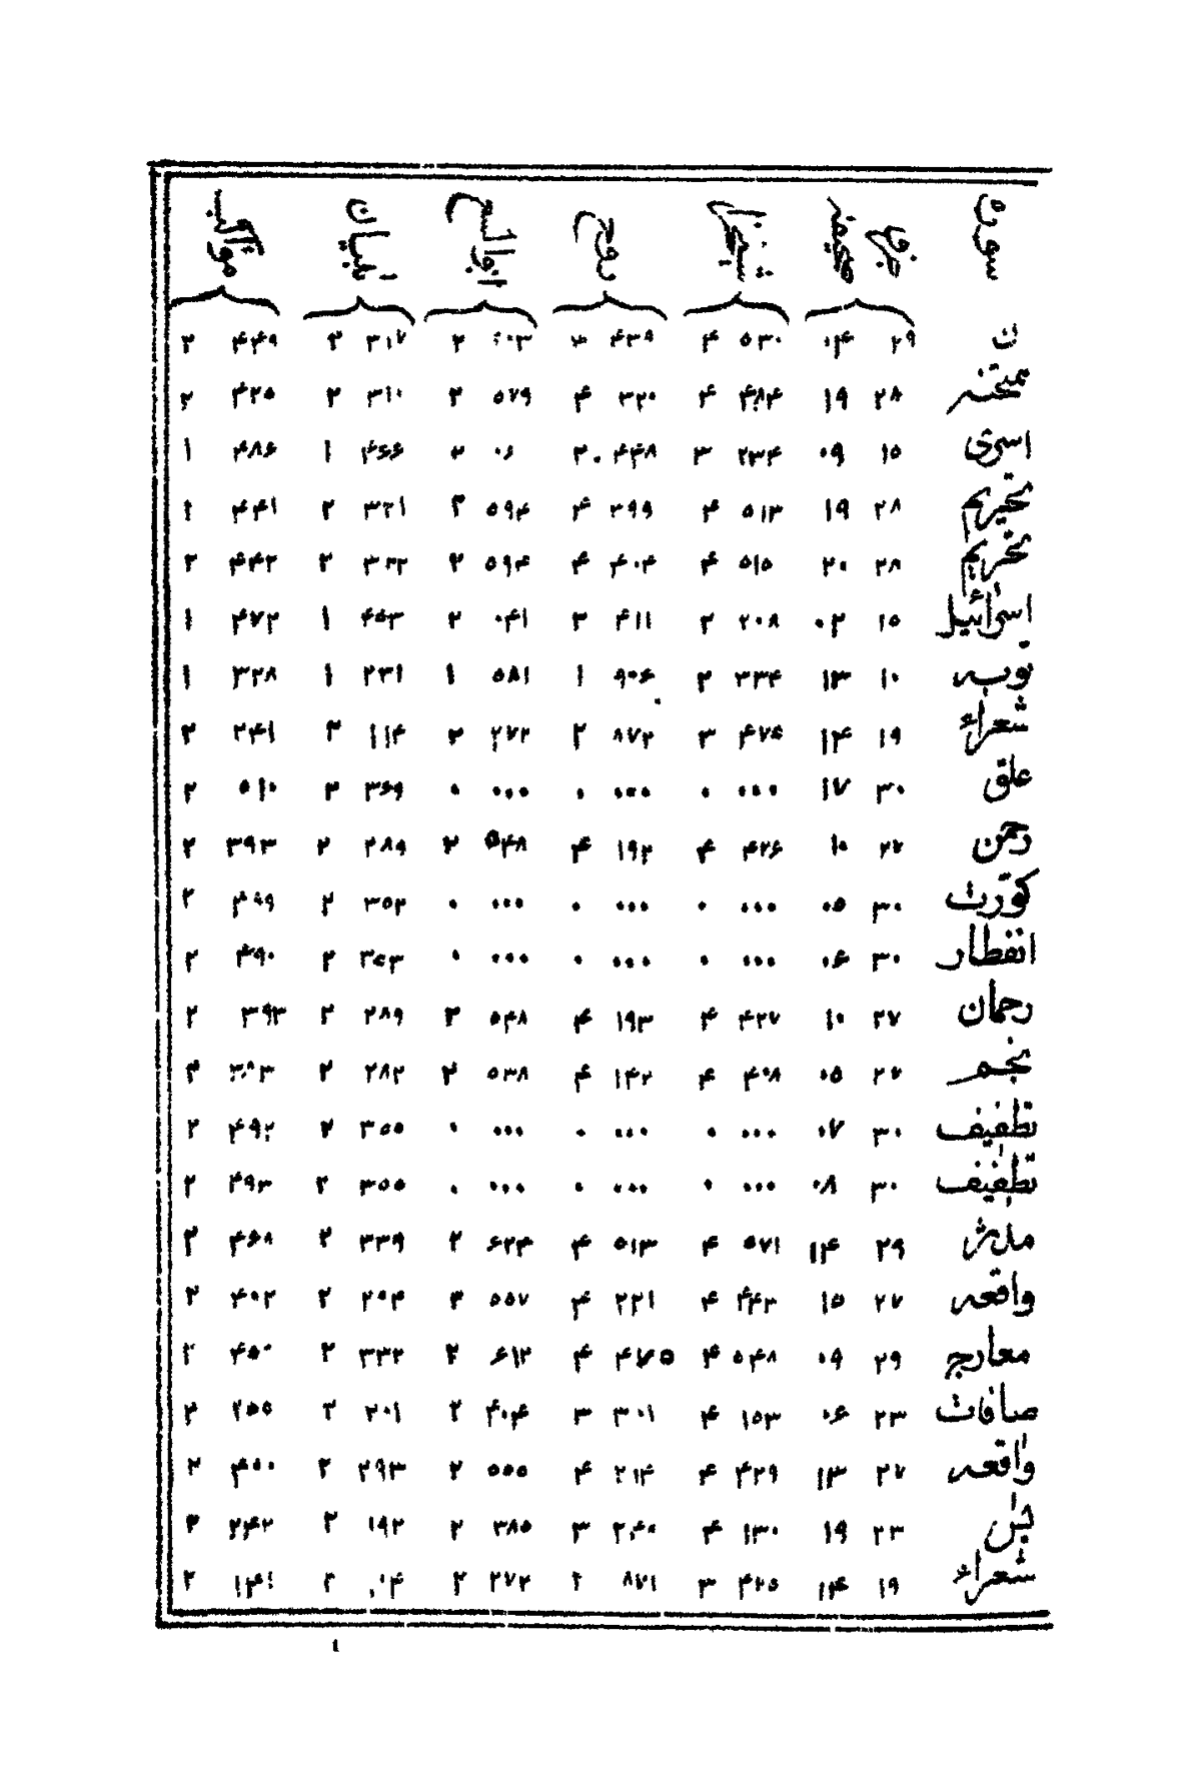 سوره جزو صحیفه شیخزاده روح ابوالسعود تبیان مواکب
ن ۲۹ ۰۴ ۵۳۰ ۴ ۴۳۹ ۳۱۷ ۲ ۴۴۹ ۲
ممتحنه ۲۸ ۱۹ ۴۸۴ ۴ ۳۲۰ ۴ ۵۷۹ ۲ ۳۱۰ ۲ ۴۲۵ ۲
اسری ۱۵ ۰۹ ۲۳۴ ۳ ۴۴۸ ۰۶ ۲ ۴۶۶ ۱ ۴۸۶ ۱
تحریم ۲۸ ۱۹ ۵۱۳ ۴ ۳۹۹ ۴ ۵۹۴ ۲ ۳۲۱ ۲ ۴۴۱
تحریم ۲۸ ۲۰ ۵۱۵ ۴ ۴۰۴ ۴ ۵۹۴ ۲ ۳۲۲ ۲ ۴۴۲ ۲
اسرائیل ۱۵ ۰۲ ۲۰۸ ۴۱۱ ۳ ۰۴۱ ۲ ۴۵۳ ۱ ۴۷۲ ۱
توبه ۱۰ ۱۳ ۳۳۴ ۲ ۹۰۶ ۱ ۵۸۱ ۱ ۲۳۱ ۱ ۳۲۸ ۱
شعراء ۱۹ ۱۴ ۴۷۵ ۳ ۸۷۲ ۲ ۲۷۲ ۲ ۱۱۴ ۲ ۲۴۱ ۲
علق ۳۰ ۱۷ ۰۰۰ ۰ ۰۰۰ ۰ ۰۰۰ ۰ ۳۶۹ ۲ ۵۱۰ ۲
رحمن ۲۷ ۱۰ ۴۲۶ ۴ ۱۹۲ ۴ ۵۴۸ ۲ ۲۸۹ ۲ ۳۹۳ ۲
کورت ۳۰ ۰۵ ۰۰۰ ۰ ۰۰۰ ۰ ۰۰۰ ۰ ۳۵۲ ۲ ۴۸۹ ۲
انفطار ۳۰ ۰۶ ۰۰۰ ۰ ۰۰۰ ۰ ۰۰۰ ۰ ۳۵۳ ۲ ۴۹۰ ۲
رحمان ۲۷ ۱۰ ۴۲۷ ۴ ۱۹۳ ۴ ۵۴۸ ۲ ۲۸۹ ۲ ۳۹۳ ۲
نجم ۲۷ ۰۵ ۴۰۸ ۴ ۱۴۲ ۴ ۵۳۸ ۲ ۲۸۲ ۲ ۳۸۳ ۲
تطفیف ۳۰ ۰۷ ۰۰۰ ۰ ۰۰۰ ۰ ۰۰۰ ۰ ۳۵۵ ۲ ۴۹۲ ۲
تطفیف ۳۰ ۰۸ ۰۰۰ ۰ ۰۰۰ ۰ ۰۰۰ ۰ ۳۵۵ ۲ ۴۹۳ ۲
مدثر ۲۹ ۱۴ ۵۷۱ ۴ ۵۱۳ ۴ ۶۲۴ ۲ ۳۳۹ ۲ ۴۶۸ ۲
واقعه ۲۷ ۱۵ ۴۴۳ ۴ ۲۲۱ ۴ ۵۵۷ ۲ ۲۹۴ ۲ ۴۰۲ ۲
معارج ۲۹ ۰۹ ۵۴۸ ۴ ۴۷۵ ۴ ۶۱۲ ۲ ۳۳۲ ۲ ۴۵۰ ۲
صافات ۲۳ ۰۶ ۱۵۳ ۴ ۳۰۱ ۳ ۴۰۴ ۲ ۲۰۱ ۲ ۲۵۵ ۲
واقعه ۲۷ ۱۳ ۴۲۹ ۴ ۲۱۴ ۴ ۵۵۵ ۲ ۲۹۳ ۲ ۴۰۰ ۲
یس ۲۳ ۱۹ ۱۳۰ ۴ ۳ ۳۸۵ ۲ ۱۹۲ ۲ ۲۴۲ ۲
شعراء ۱۹ ۱۴ ۴۲۵ ۳ ۸۷۱ ۲ ۲۷۲ ۲ ۲ ۱۴۱ ۲
۱